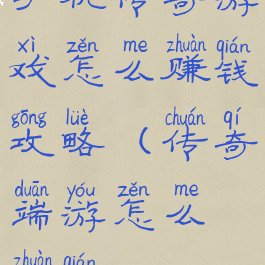 手机传奇游
xì zěn me zhuàn qián
戏怎么赚钱
gōng lüè chuán qí
攻略（传奇
duān yóu zěn me
端游怎么
zhuàn qián